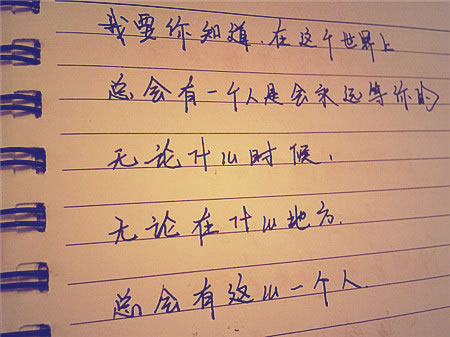 我要你知道.在这个世界上
总会有一个人是会永远等你的
无论什么时候,
无论在什么地方.
总会有这么一个人.